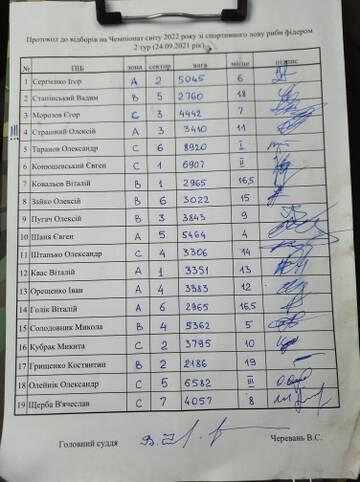 Протокол до відборів на Чемпіонат світу 2022 року зі спортивного лову риби фідером
2 тур (24.09.2021 рік)
№ ПІБ зона сектор вага місце підпис
1 Сергієнко Ігор А 2 5045 6
2 Стапінський Вадим В 5 2760 18
3 Морозов Єгор С 3 4442 7
4 Страшний Олексій А 3 3410 11
5 Таранов Олександр С 6 8920 I
6 Конюшевський Євген С 1 6907 II
7 Ковальов Віталій В 1 2965 16,5
8 Зайко Олексій В 6 3022 15
9 Пугач Олексій В 3 3843 9
10 Шаня Євген А 5 5464 4
11 Штанько Олександр С 4 3306 14
12 Квас Віталій А 1 3351 13
13 Орещенко Іван А 4 3383 12
14 Голік Віталій А 6 2965 16,5
15 Солодовник Микола В 4 5362 5
16 Кубрак Микита С 2 3795 10
17 Грищенко Костянтин В 2 2186 19
18 Олейнік Олександр С 5 6582 III
19 Щерба В'ячеслав С 7 4057 8
Головний суддя Черевань В.С.